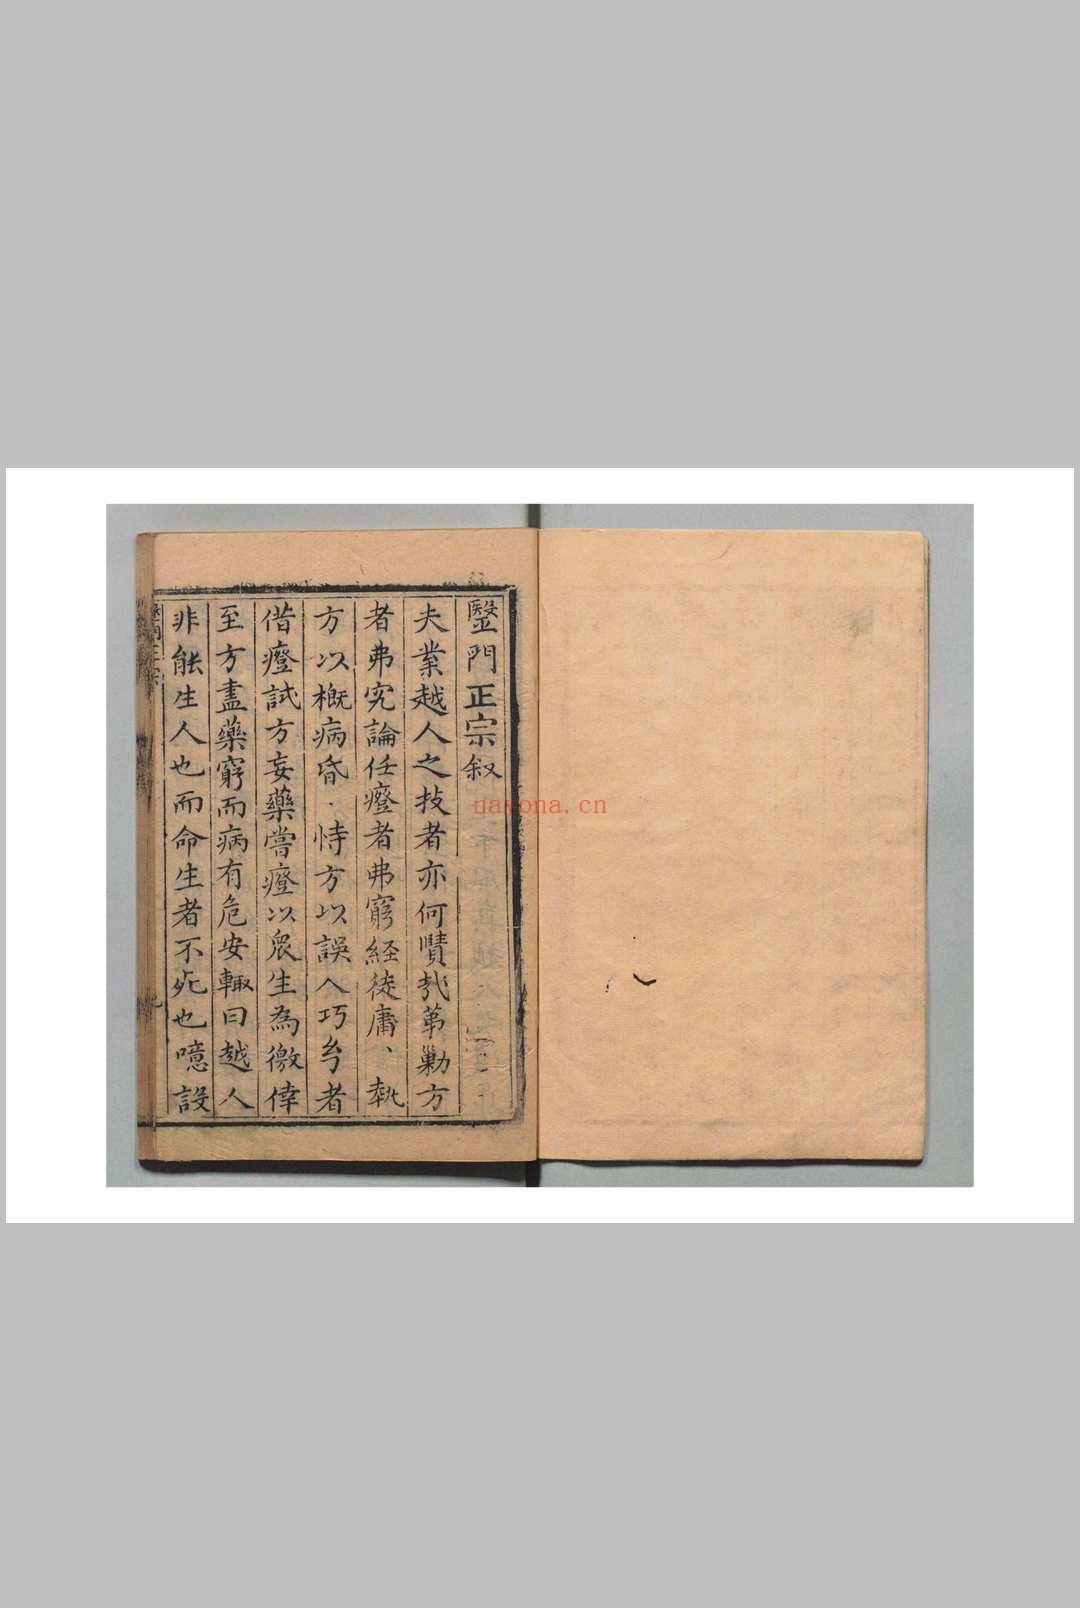 毉門正宗叙
夫業越人之技者亦何賾㢤苐勦方
者弗究論任證者弗窮經徒庸、執
方以概病昏·恃方以誤人巧兮者
借證試方妄藥嘗證以衆生為徼倖
至方盡藥窮而病有危安輙曰越人
非能生人也而命生者不死也噫設
nayona.cn